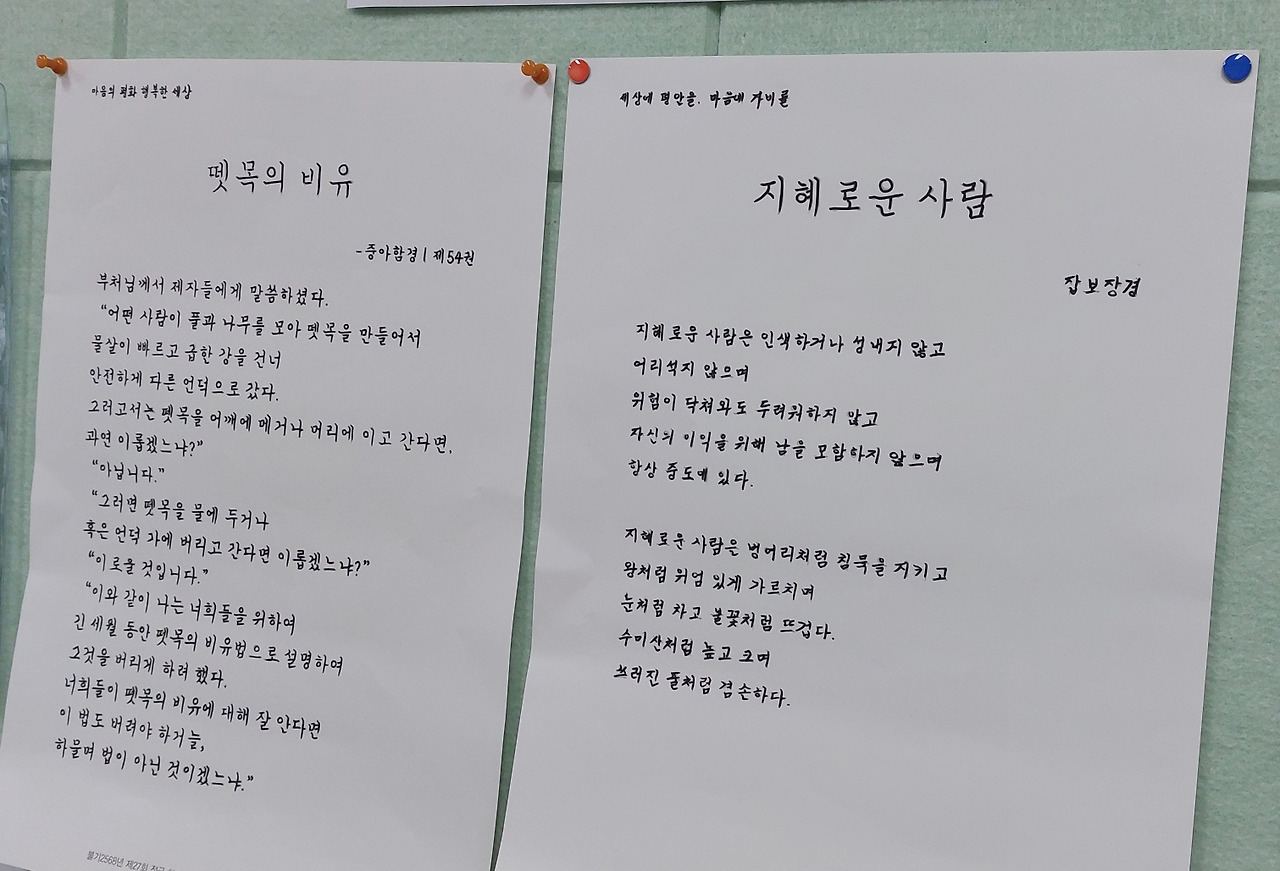 마음의 평화 행복한 세상
뗏목의 비유
-중아함경 | 제54권
부처님께서 제자들에게 말씀하셨다.
“어떤 사람이 풀과 나무를 모아 뗏목을 만들어서
물살이 빠르고 급한 강을 건너
안전하게 다른 언덕으로 갔다.
그러고서는 뗏목을 어깨에 메거나 머리에 이고 간다면,
과연 이롭겠느냐?”
“아닙니다.”
“그러면 뗏목을 물에 두거나
혹은 언덕 가에 버리고 간다면 이롭겠느냐?”
“이로울 것입니다.”
“이와 같이 나는 너희들을 위하여
긴 세월 동안 뗏목의 비유법으로 설명하여
그것을 버리게 하려 했다.
너희들이 뗏목의 비유에 대해 잘 안다면
이 법도 버려야 하거늘,
하물며 법이 아닌 것이겠느냐.”
불기2568년 제27회
세상에 평안을, 마음에 자비를
지혜로운 사람
잡보장경
지혜로운 사람은 인색하거나 성내지 않고
어리석지 않으며
위험이 닥쳐와도 두려워하지 않고
자신의 이익을 위해 남을 모함하지 않으며
항상 중도에 있다.
지혜로운 사람은 벙어리처럼 침묵을 지키고
왕처럼 위엄 있게 가르치며
눈처럼 차고 불꽃처럼 뜨겁다.
수미산처럼 높고 크며
쓰러진 풀처럼 겸손하다.